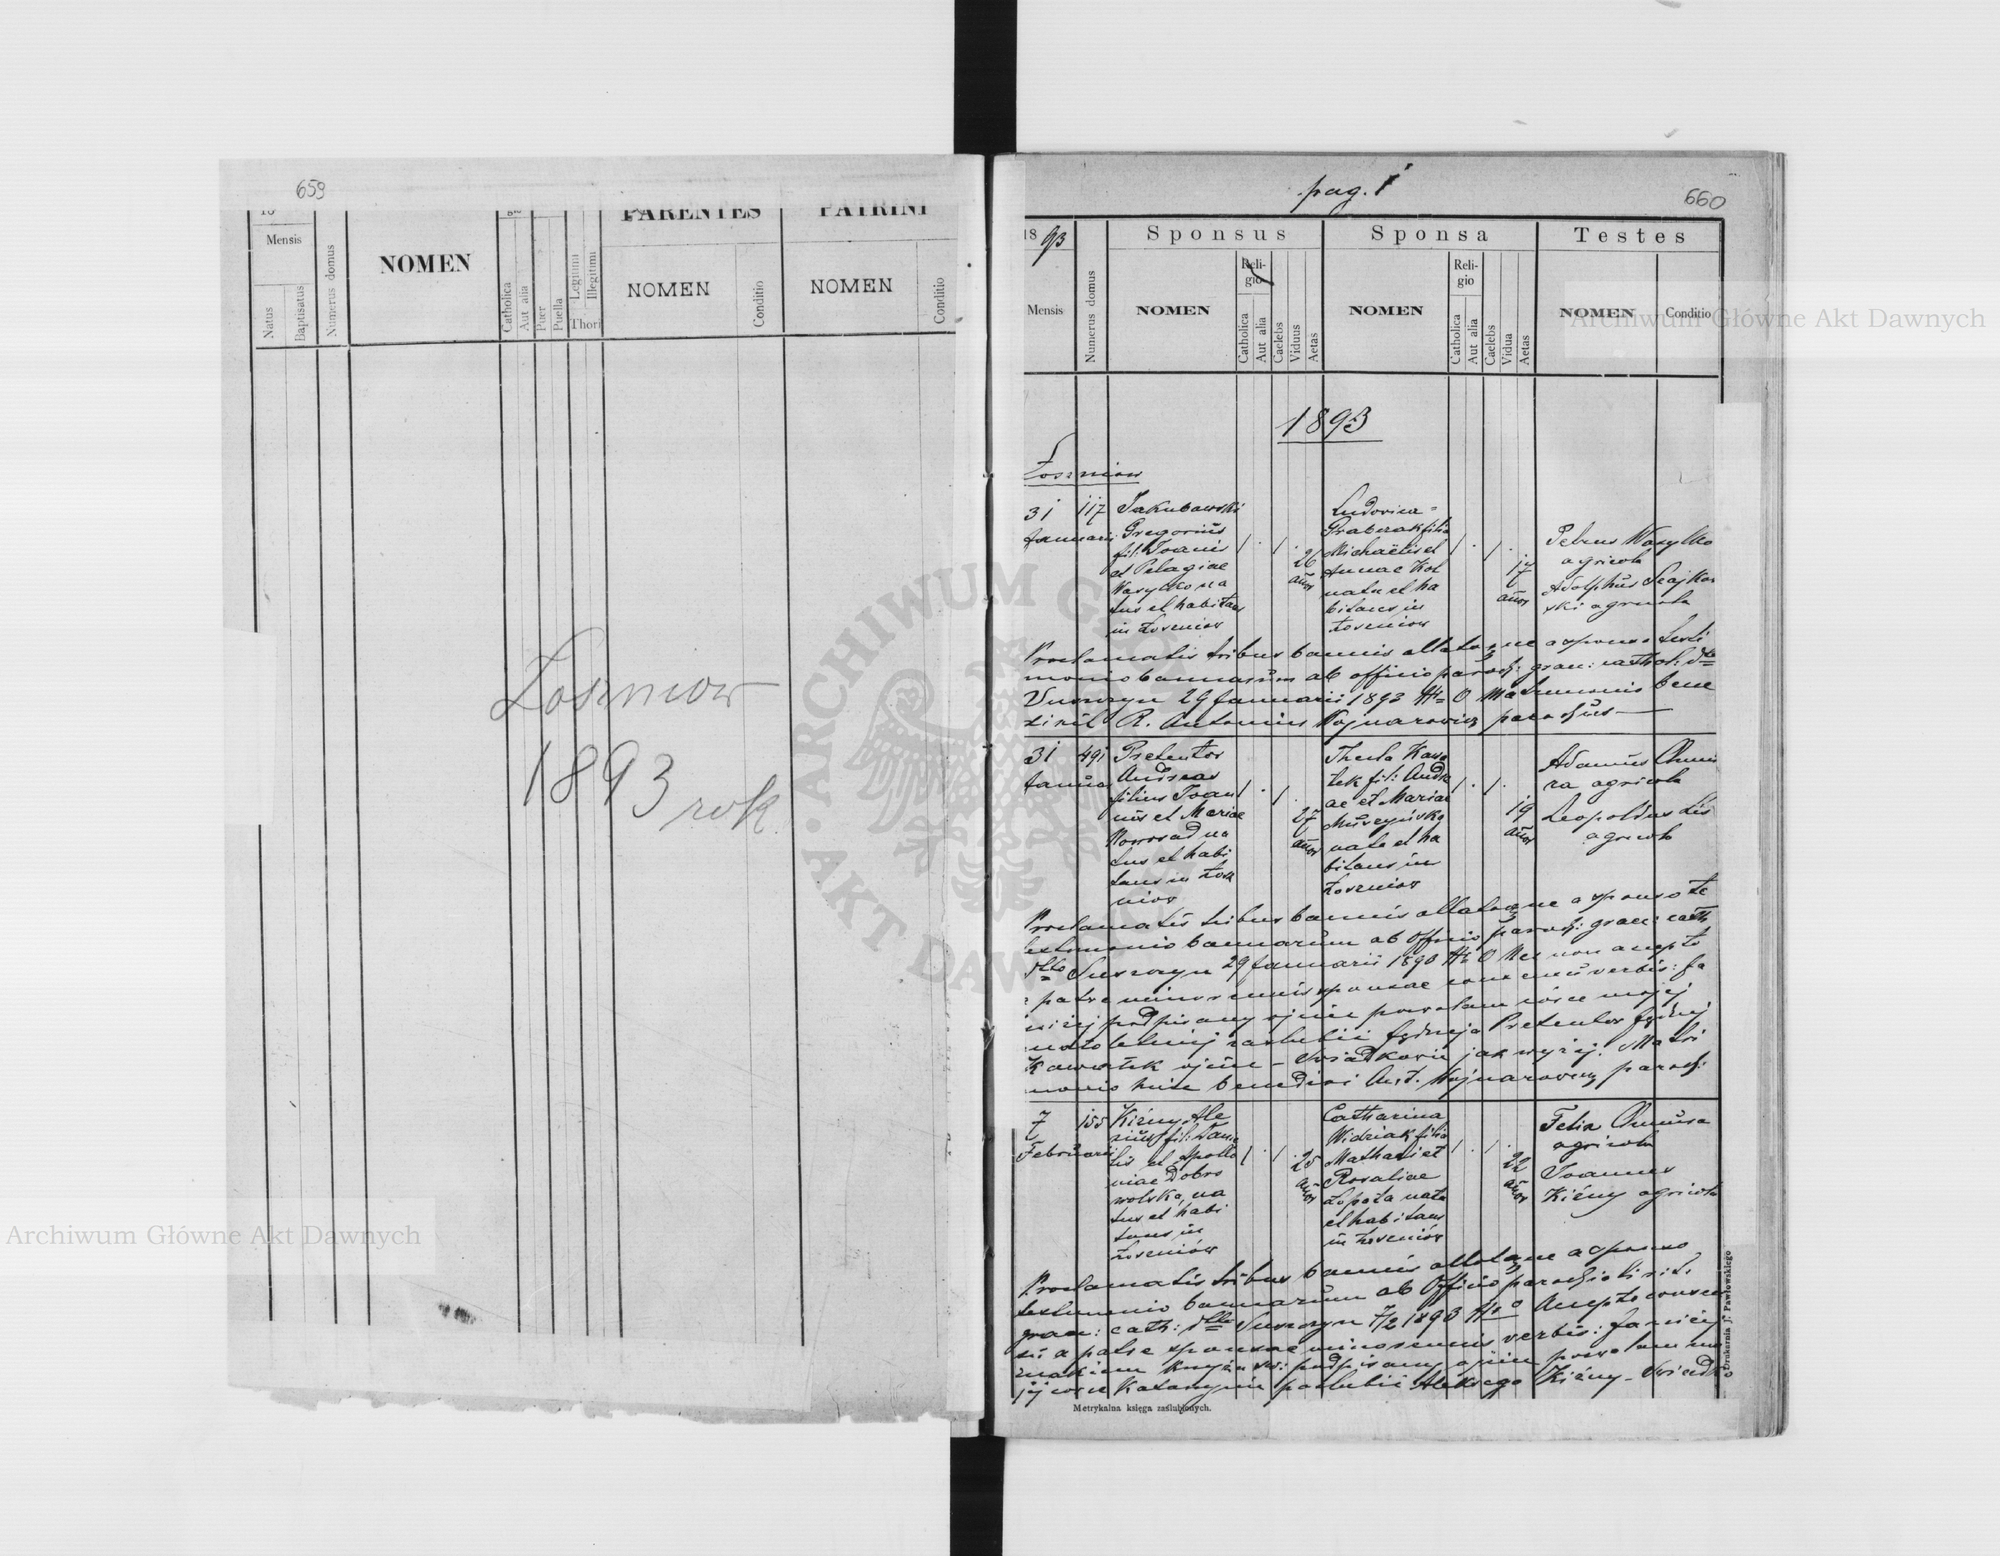 659
18
Mensis
Natus
Baptisatus
Numerus domus
NOMEN
Catholica
Aut alia
Puer
Puella
Legitimi
Illegitimi
Thori
PARENTES
NOMEN
Conditio
PATRINI
NOMEN
Conditio
Łoszniow
1893 rok
Archiwum Główne Akt Dawnych
ARCHIWUM GŁÓWNE
AKT DAWNYCH
pag. 1
660
1893
Mensis
Numerus domus
Sponsus
NOMEN
Religio
Catholica
Aut alia
Caelebs
Viduus
Aetas
Sponsa
NOMEN
Religio
Catholica
Aut alia
Caelebs
Vidua
Aetas
Testes
NOMEN
Conditio
Archiwum Główne Akt Dawnych
1893
Łoszniow
31
Januarii
117
Jakubowski
Gregorius
fil: Joanis
et Pelagiae
Wasylko na
tus et habitans
in Łoszniow
26
Ludovica
filia
Michaëlis et
Annae Kot
nata et ha
bitans in
Łoszniow
17
annor
Petrus Wasylko
agricola
Adolphus
ski agricola
Proclamatis tribus bannis allatoque a sponso testi
monio bannorum ab officio paroch: graec: cathol: dtto
29 Januarii 1893 Matrimonio bene
dixit R. Antonius Wojnarowicz parochus
31
Januar
491
Pretentor
Andreas
filius Joan
nis et Mariae
Nowosad na
tus et habi
tans in Łosz
niow
27
annor
Thecla Kawa
lek fil: Andre
ae et Mariae
nata et ha
bitans in
Łoszniow
19
annor
Adamus Chmu
ra agricola
Leopoldus Lis
agricola
Proclamatis tribus bannis allatoque a sponso te
stimonio bannorum ab Officio paroch: graec: cath
dtto 29 Januarii 1893 Nec non accepto
a patre minorennis sponsae consensu verbis: Ja
niżej podpisany ojciec pozwalam córce mojej
małoletniej zaślubić Jędrzeja Pretentor Jędrzej
Kawałek ojciec - świadkowie jak wyżej. Matri
monio huic benedixi Ant. Wojnarowicz paroch:
7
Februarii
155
Kiźny Ale
xius fil:
et Apollo
niae Dobro
wolska, na
tus et habi
tans in
Łoszniów
25
annor
Catharina
Widziak filia
Mathaei et
Rosaliae
Łopata nata
et habitans
in Łoszniów
22
annor
Felix Chmura
agricola
Joannes
Kiźny agricola
Proclamatis tribus bannis allatoque a sponso
testimonio bannorum ab Officio parochiali rit:
graec: cath: dtto 7/2 1893 Accepto consen
su a patre sponsae minorennis verbis: Ja niżej
znakiem krzyża św: podpisany ojciec pozwalam mo
jej córce Katarzynie poślubić Aleksego Kiźny - świadko
Metrykalna księga zaślubionych.
Drukarnia J. Pawłowskiego